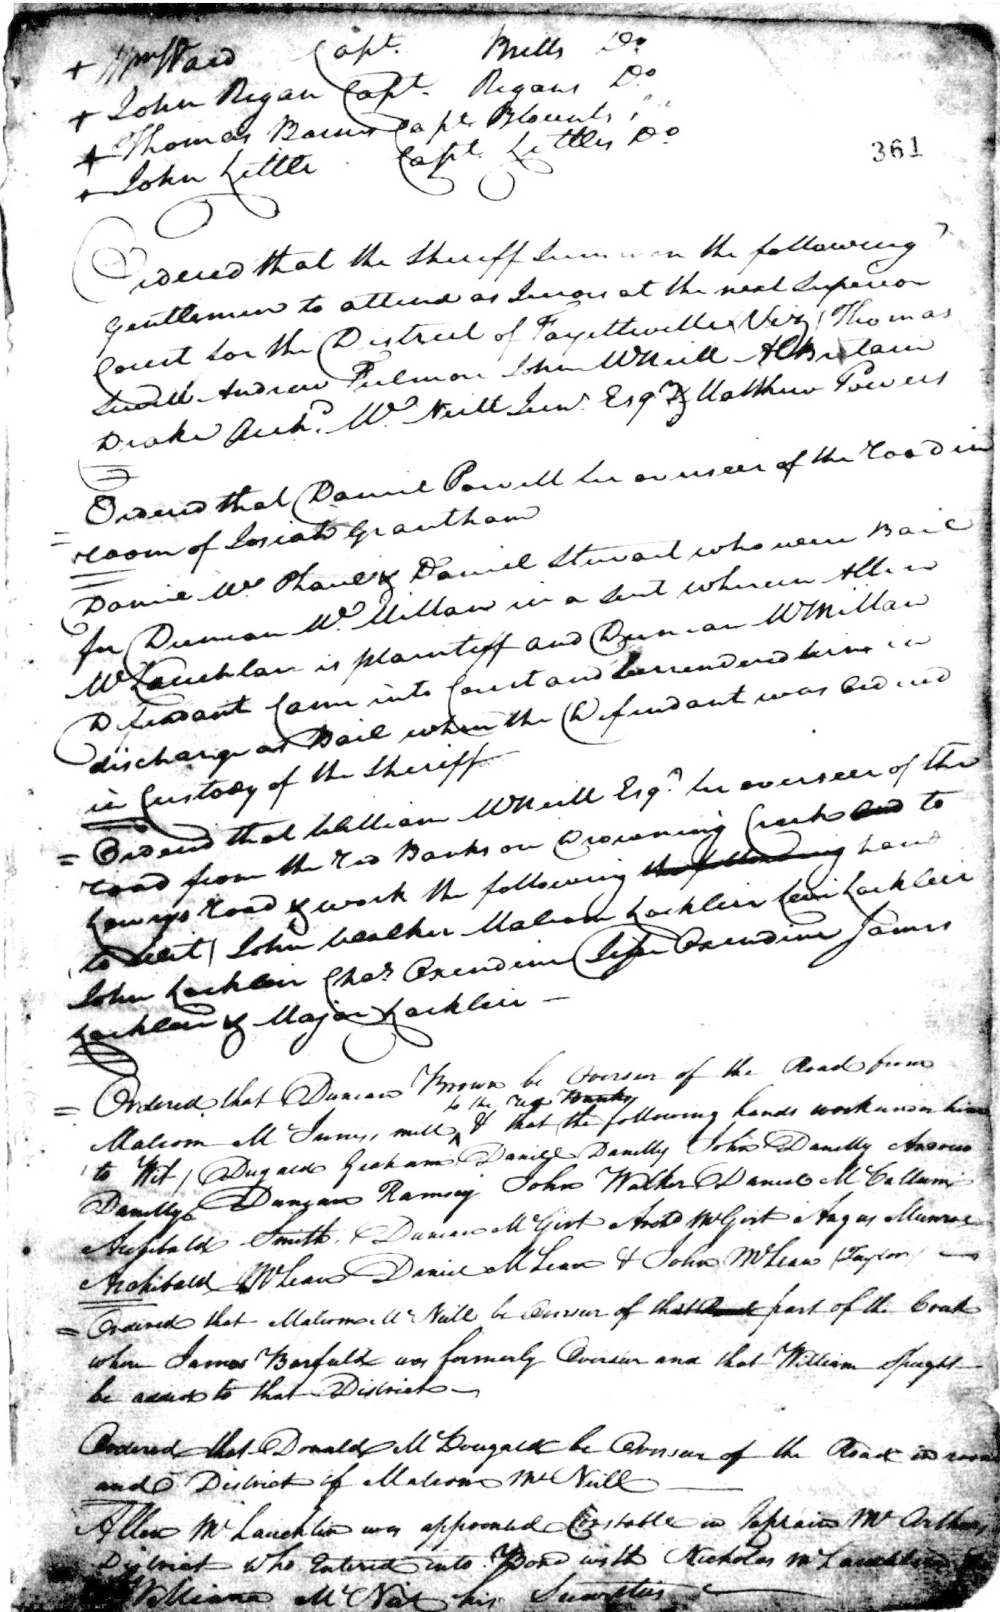 + Wm Ward Capt. Bells Do
+ John Regan Capt. Regans Do
+ Thomas Capt Blounts "
+ John Little Capt. Littles Do
361
Ordered that the Sheriff Summon the following
gentlemen to attend as Jurors at the next Superior
Court for the District of Fayetteville (Viz) Thomas
Andrew John McNeill Albritain
Drake Archd. Mc. Neill Junr. Esqr. & Matthew Powers
= Ordered that Daniel Powell be overseer of the road in
room of Josiah Grantham
Daniel Mc Phaul & Daniel Stewart who were Bail
for Duncan Mc. Millan in a suit wherein Allen
McLauchlan is plaintiff and Duncan McMillan
Defendant Came into Court and Surrendered him in
discharge as Bail when the Defendant was ordered
in Custody of the Sheriff
= Ordered that William McNeill Esqr. be overseer of the
road from the red Banks on Drowning Creek and to
Lowrys road & work the following the following hand
to wit) John Walker Malcom Locklier Levi Locklier
John Locklier Chas Oxendine Oxendine James
Locklier & Major Locklier —
= Ordered that Duncan Brown be Overseer of the Road from
to the
Malcom McInnis mill & that the following hands work under him
to Wit) Dugald Graham Daniel Danelly John Danelly Andrew
Danelly Duncan Ramsey John Walker Daniel McCallum
Archibald Smith Duncan McGirt Archd McGirt Angus Munroe
Archibald McLean Daniel McLean & John McLean (Taylor) —
= Ordered that Malcom Mc Neill be Overseer of that part of the
where James Barfield was formerly Overseer and that William Speight
be added to that District —
Ordered that Donald McDougald be Overseer of the Road in room
and District of Malcom McNeill —
Allen McLauchlin was appointed Constable in Captain McArthurs
District who Entered into Bond with Nicholas McLauchlin
William McNeil his Sureties —